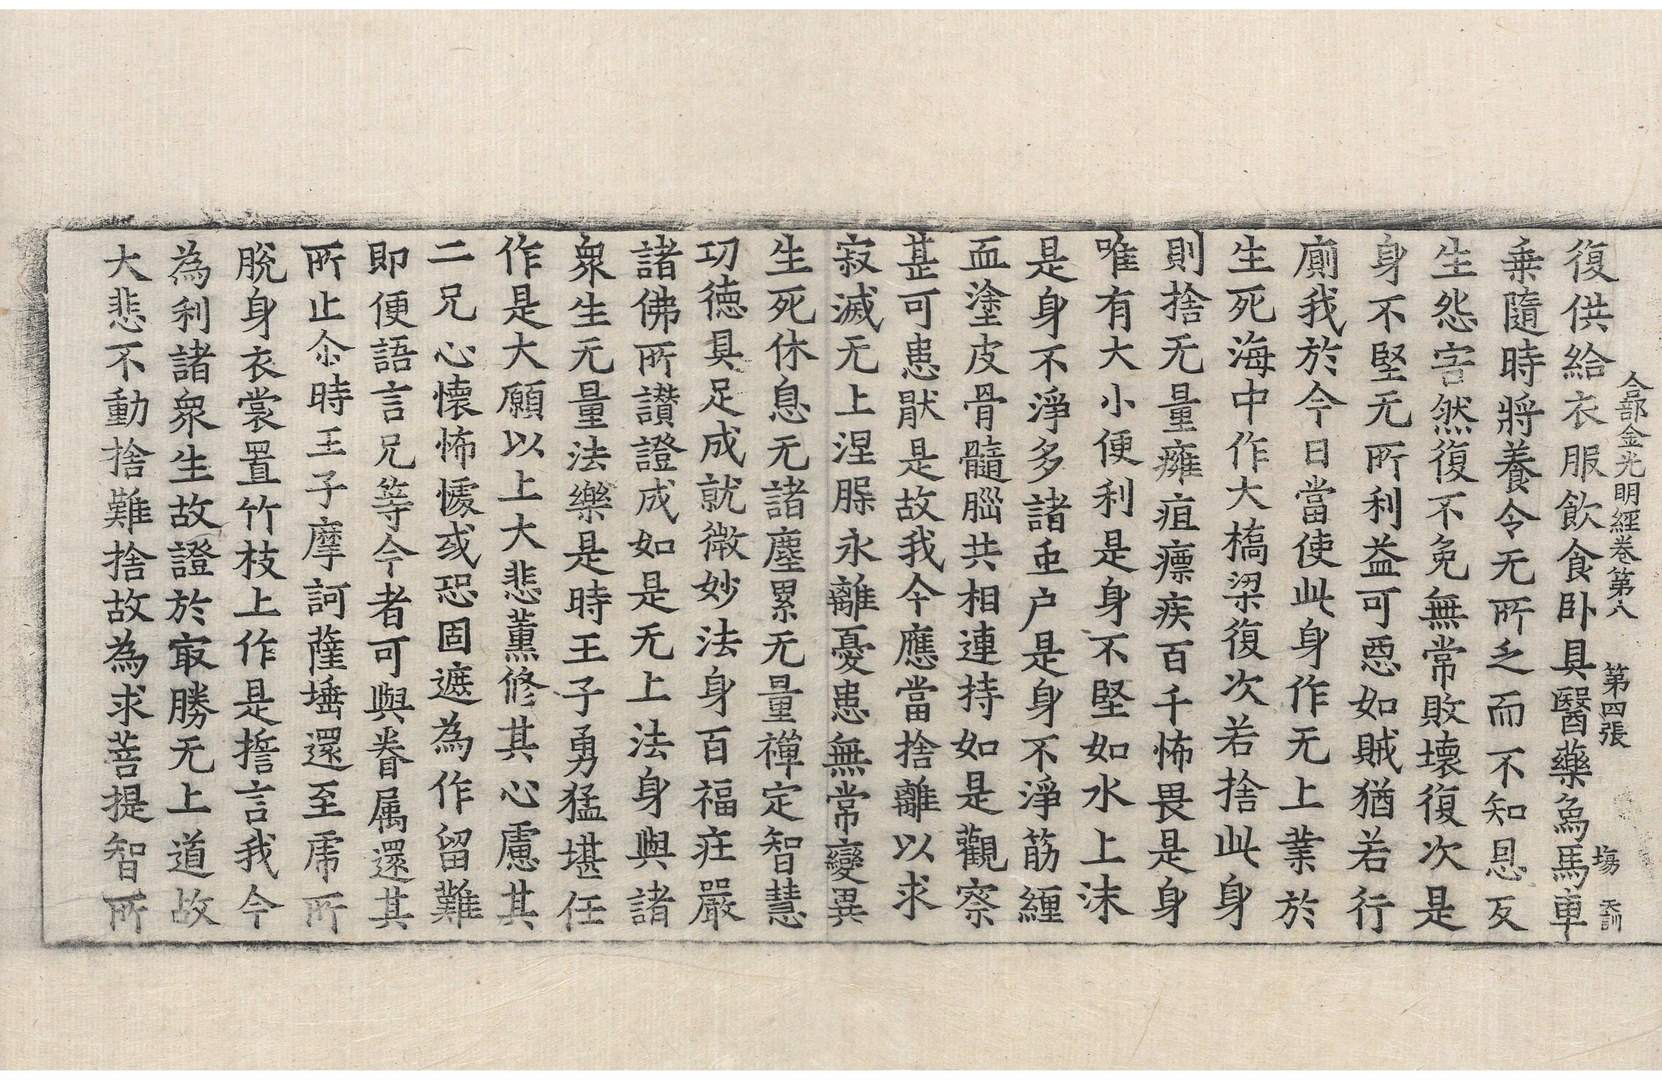 合部金光明經卷第八　第四張　塲　天訓
復供給衣服飲食卧具醫藥烏馬車
乗隨時將養令无所乏而不知恩反
生怨害然復不免無常敗壞復次是
身不堅无所利益可惡如賊猶若行
廁我於今日當使此身作无上業於
生死海中作大橋梁復次若捨此身
則捨无量癰疽瘭疾百千怖畏是身
唯有大小便利是身不堅如水上沫
是身不淨多諸䖝户是身不淨筋纏
血塗皮骨髓𦛁共相連持如是觀察
甚可患猒是故我今應當捨離以求
寂滅无上涅槃永離憂患無常變異
生死休息无諸塵累无量禪定智慧
功德具足成就微妙法身百福莊嚴
諸佛所讃證成如是无上法身與諸
衆生无量法樂是時王子勇猛堪任
作是大願以上大悲薰修其心慮其
二兄心懷怖懅或恐固遮為作留難
即便語言兄等今者可與眷属還其
所止尒時王子摩訶薩埵還至虎所
脫身衣裳置竹枝上作是誓言我今
為利諸衆生故證於㝡勝无上道故
大悲不動捨難捨故為求菩提智所